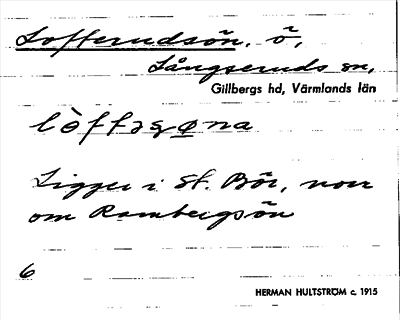 Lofferudsön, ö,
Långseruds sn,
Gillbergs hd, Värmlands län
lòffasøna
Ligger i St. Bör, norr
om Rambergsön
6
HERMAN HULTSTRÖM c. 1915